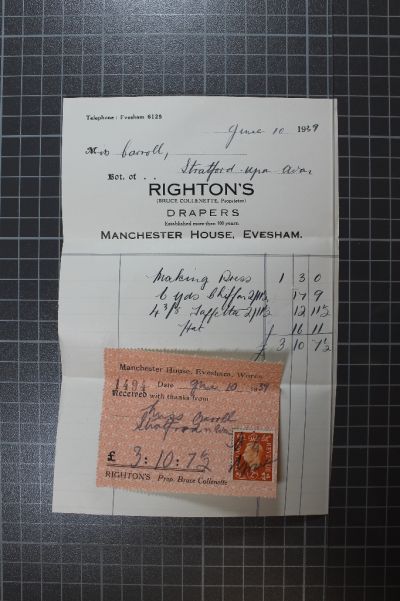 Telephone: Evesham 6128
June 10 1939
Mrs Carroll,
Stratford-upon Avon
Bot. of . .
RIGHTON'S
(BRUCE COLLENETTE, Proprietor)
DRAPERS
Established more than 100 years.
MANCHESTER HOUSE, EVESHAM.
Making Dress 1 3 0
6 yds Chiffon 2/11½ 17 9
4 3/8 Taffetta 2/11½ 12 11½
Hat 16 11
£ 3 10 7½
Manchester House, Evesham, Worcs.
1494 Date June 10 1939
Received with thanks from
Carroll
Stratford
£ 3:10:7½
RIGHTON'S Prop. Bruce Collenette